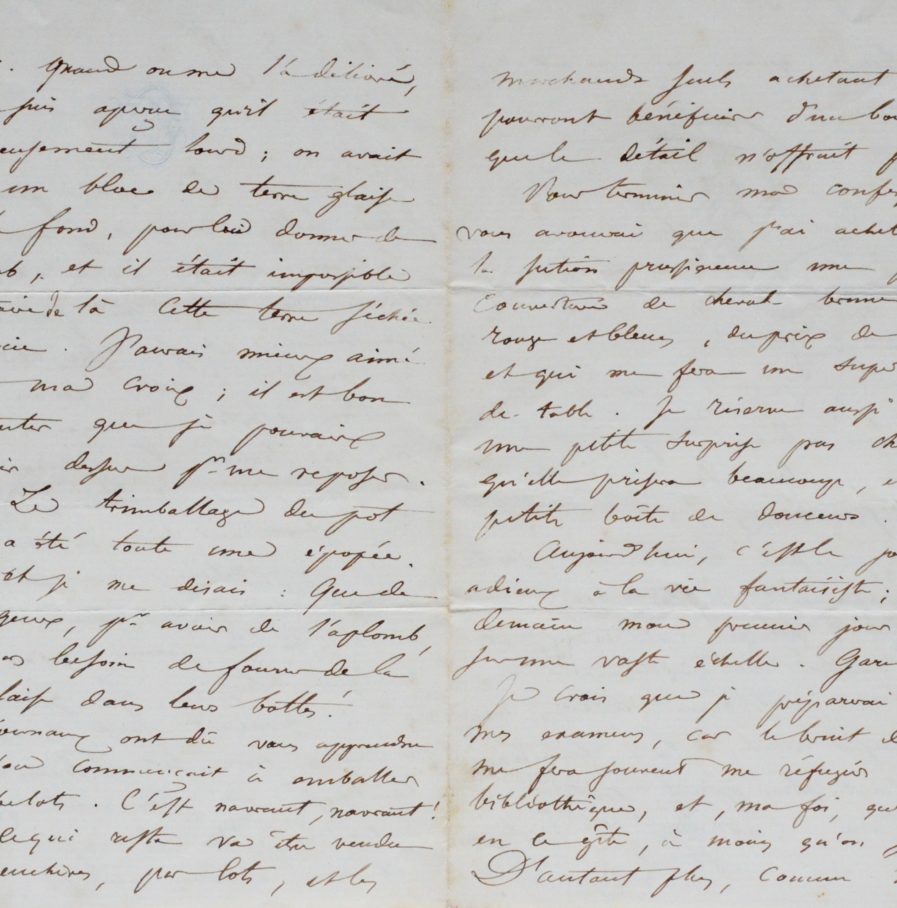 . Quand on me l'a délivré,
suis aperçu qu'il était
eusement lourd ; on avait
un bloc de terre glaise
fond, pour lui donner de
b, et il était impossible
de là cette terre séchée
cie. J'aurais mieux aimé
ma croix ; il est bon
uter que je pouvais
dessus pr me reposer.
Le trimballage du pot
a été toute une épopée.
Et je me disais : Que de
geux, pr avoir de l'aplomb,
besoin de fourrer de la
laise dans leurs bottes !
journaux ont dû vous apprendre
commençait à emballer
belots. C'est navrant, navrant !
ce qui reste va être vendu
enchères, par lots, et les
marchands seuls achetant
pourront bénéficier d'un bo
que le détail n'offrait p
Pour terminer ma confes
vous avouerai que j'ai achet
la section prussienne une
couverture de cheval brune
rouge et bleues, du prix de
et qui me fera un super
de table. Je réserve aussi
une petite surprise pas ch
qu'elle prisera beaucoup, e
petite boîte de douceurs.
Aujourd'hui, c'est le jo
adieux à la vie fantaisiste ;
demain mon premier jour
sur une vaste échelle. Gare
Je crois que je préparerai
mes examens, car le bruit d
me fera souvent me réfugier
bibliothèque, et, ma foi, que
en ce gîte, à moins qu'on
D'autant plus, comme